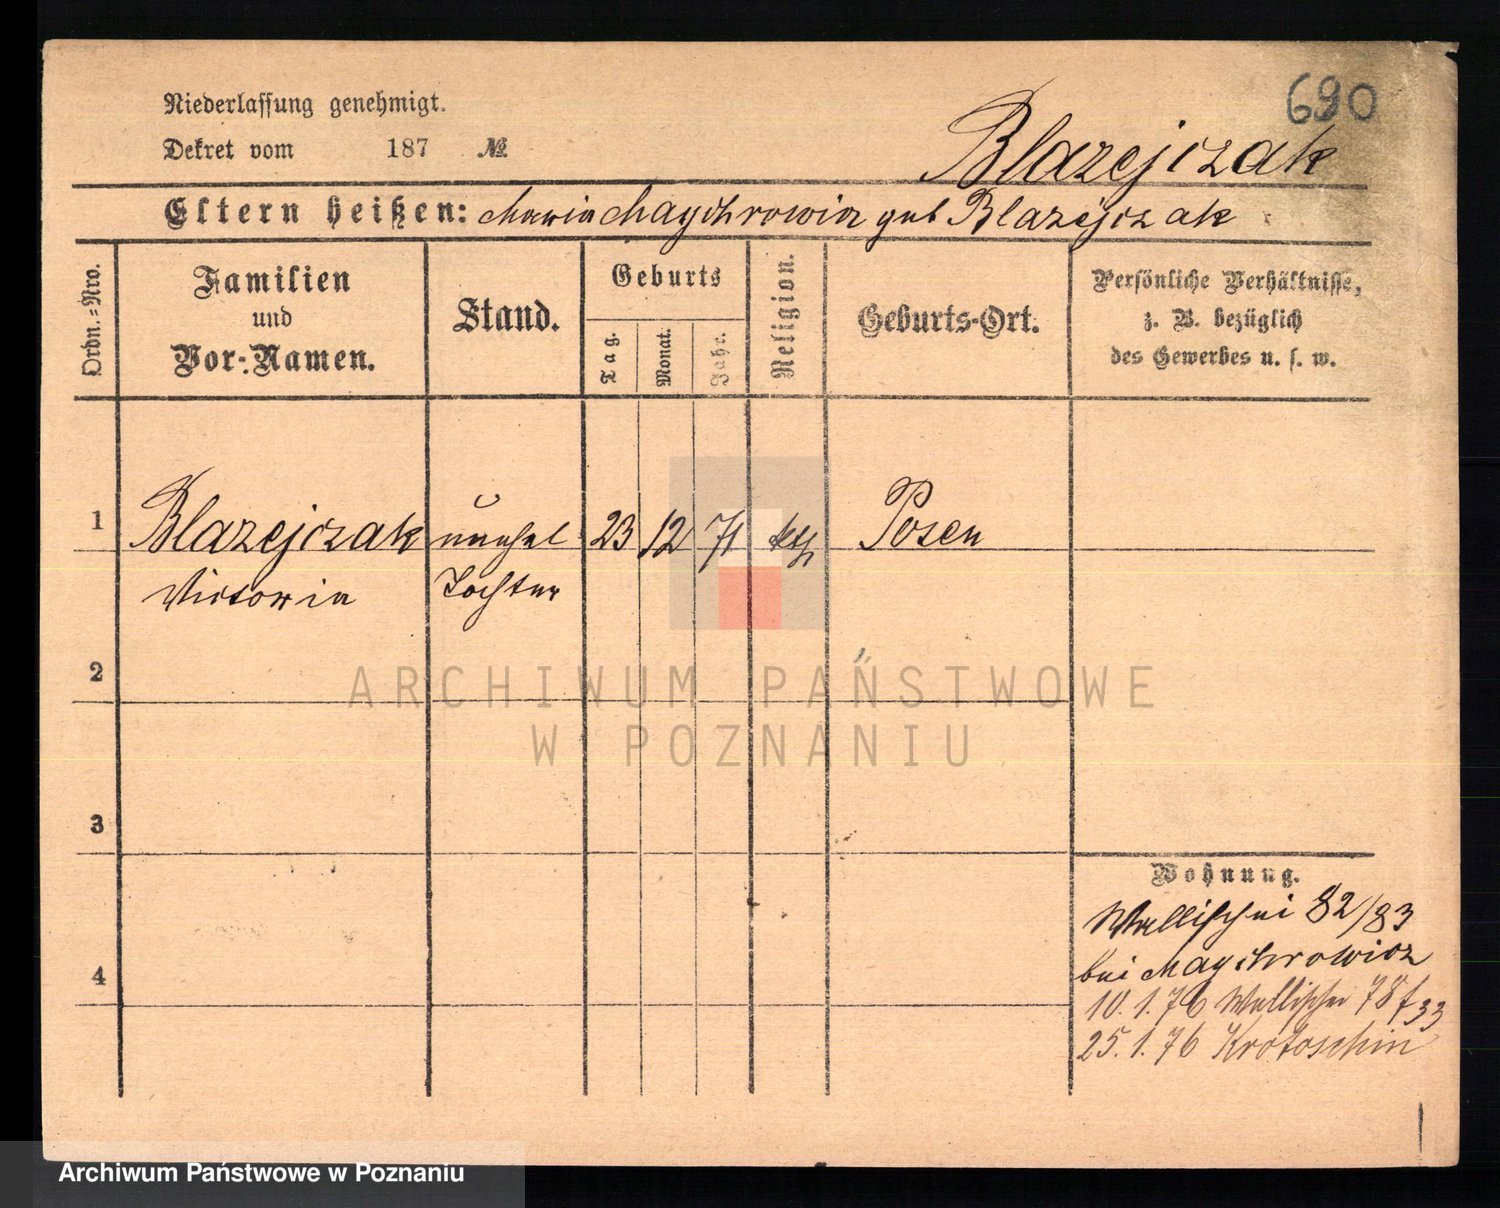 690
Niederlassung genehmigt.
Dekret vom 187 №
Blazejczak
Eltern heißen: Maria Maychrowicz geb Blazejczak
Ordn.=Nro.
Familien
und
Vor-Namen.
Stand.
Geburts
Tag.
Monat.
Jahr.
Religion.
Geburts-Ort.
Persönliche Verhältnisse,
z. B. bezüglich
des Gewerbes u. s. w.
1 Blazejczak unehel 23 12 71 kth Posen
Victoria Tochter
2
ARCHIWUM PAŃSTWOWE
W POZNANIU
3
Wohnung.
Wallischei 82/83
bei Maychrowicz
4
10.1.76 Wallischei 78 f 33
25.1.76 Krotoschin
Archiwum Państwowe w Poznaniu